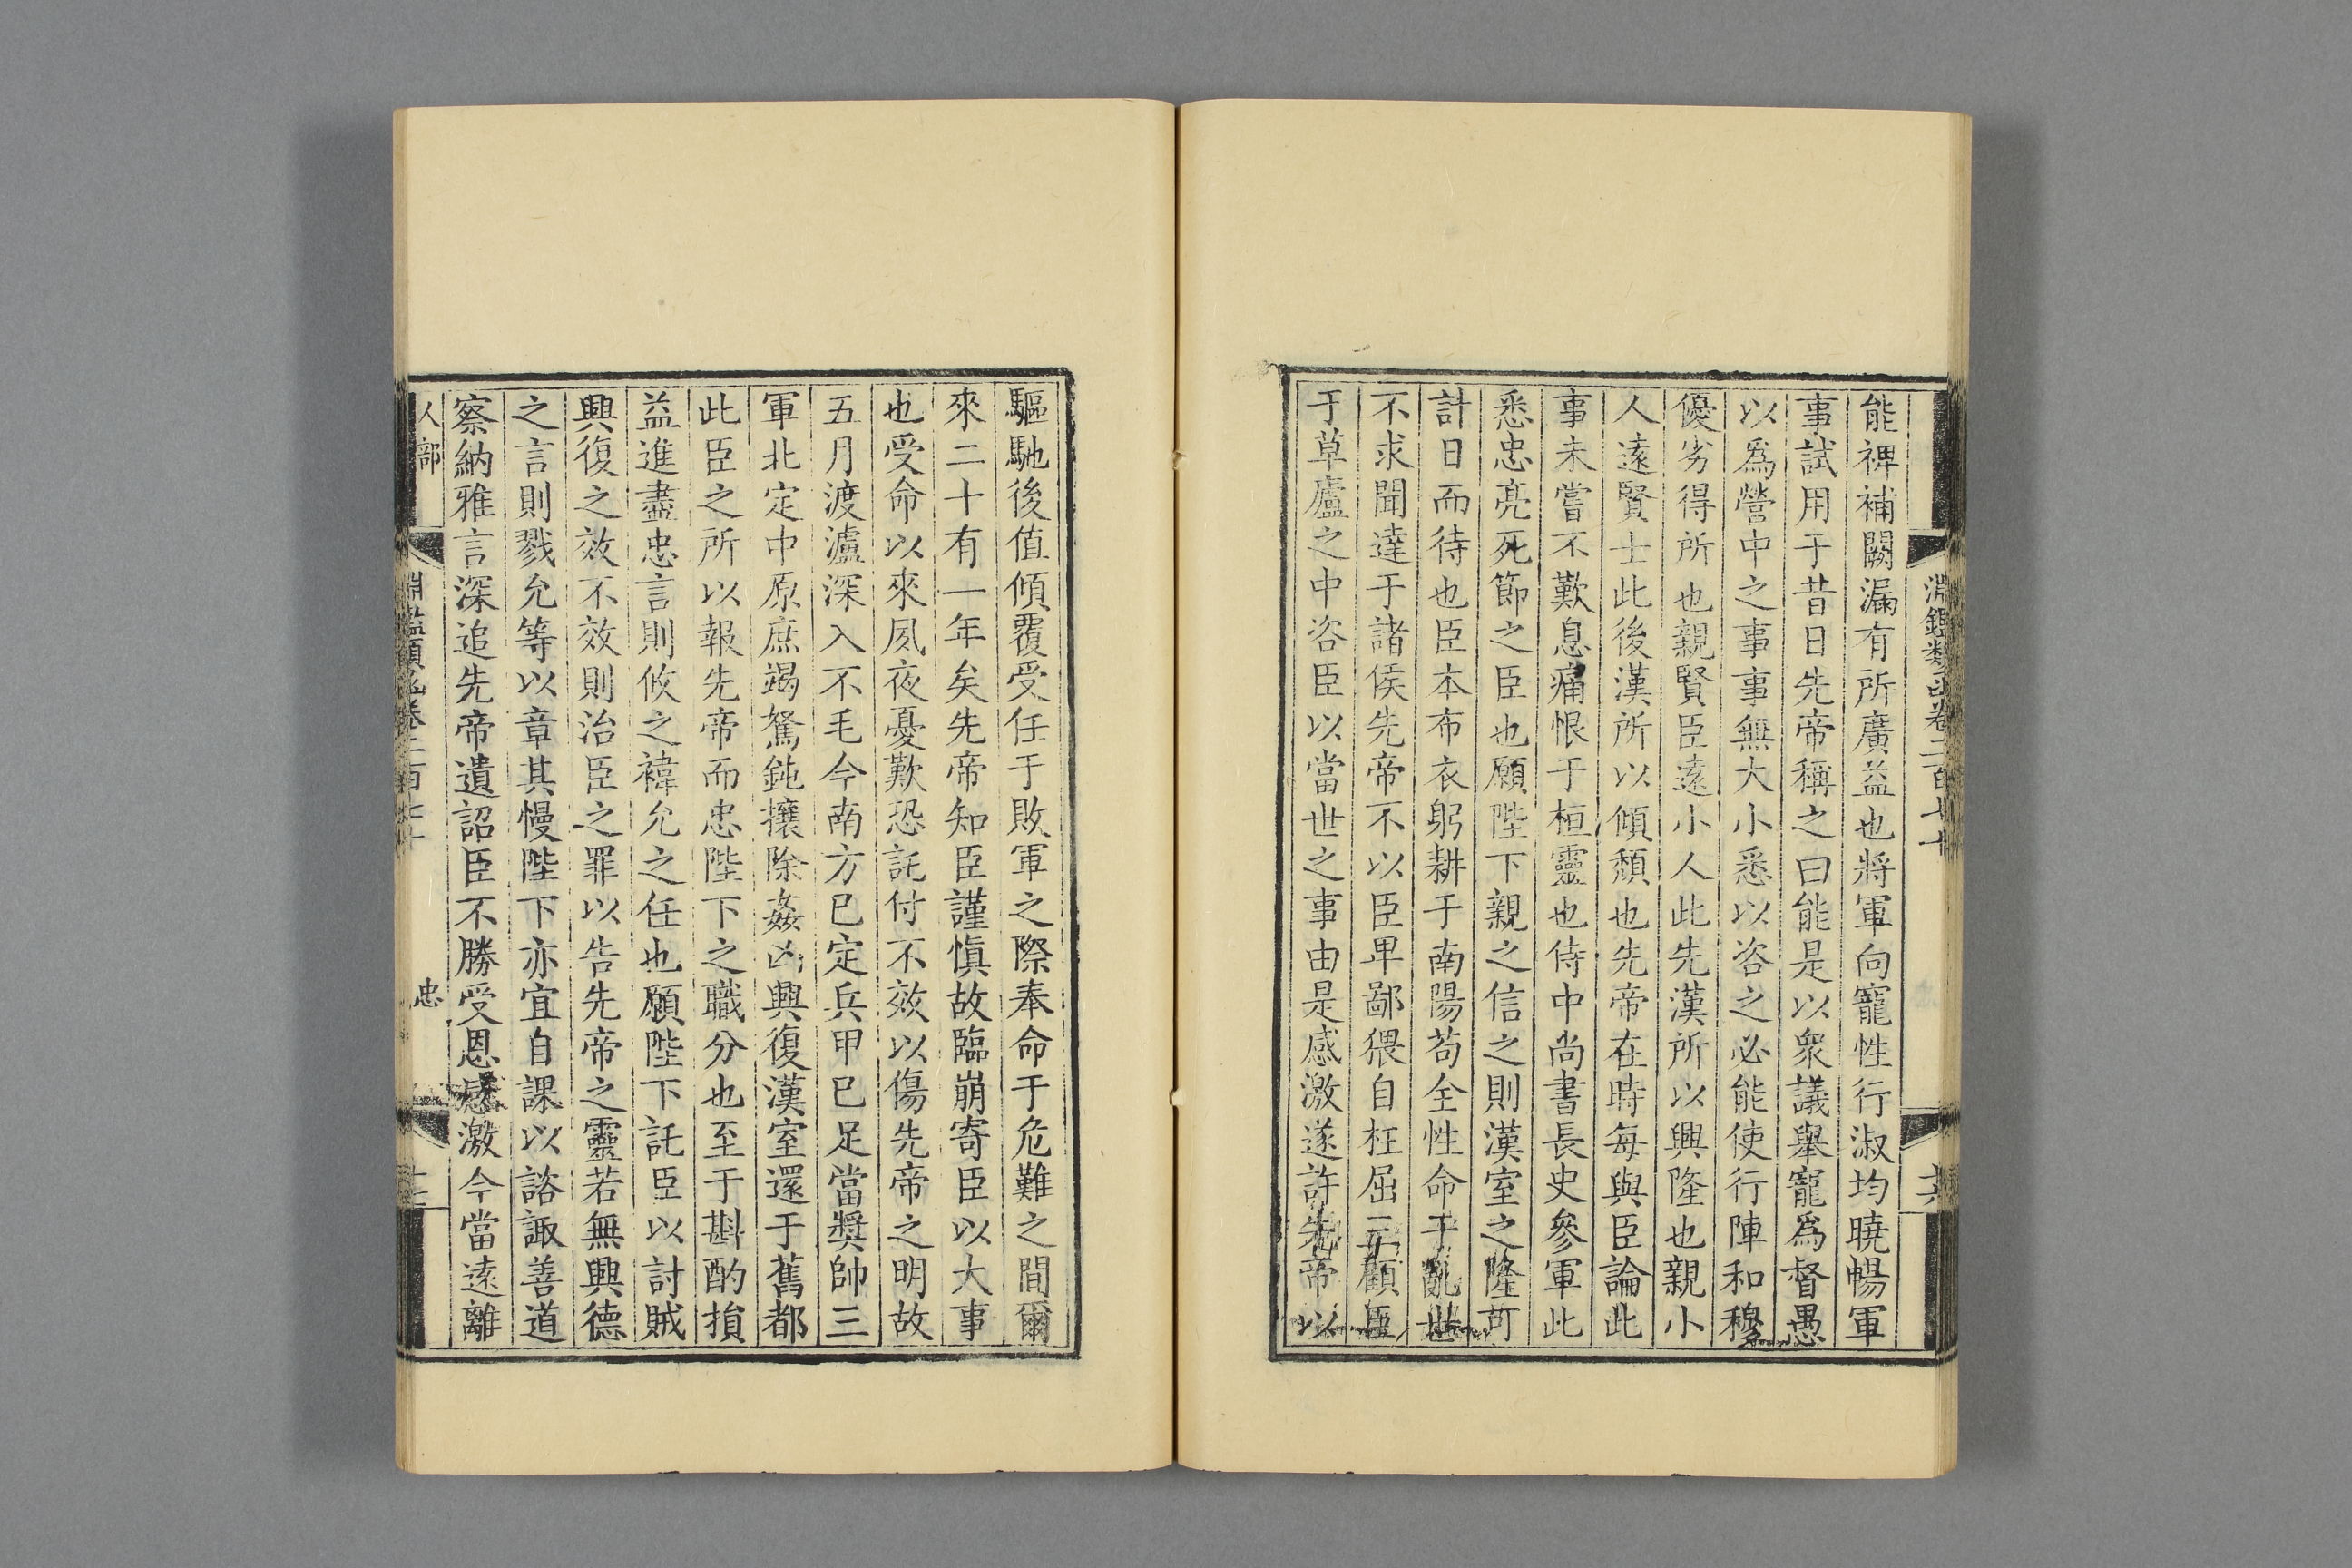 淵鑑類函卷二百七十
十六
能裨補闕漏有所廣益也將軍向寵性行淑均曉暢軍
事試用于昔日先帝稱之曰能是以衆議舉寵爲督愚
以爲營中之事事無大小悉以咨之必能使行陣和穆
優劣得所也親賢臣遠小人此先漢所以興隆也親小
人遠賢士此後漢所以傾頽也先帝在時每與臣論此
事未嘗不歎息痛恨于桓靈也侍中尚書長史參軍此
悉忠亮死節之臣也願陛下親之信之則漢室之隆可
計日而待也臣本布衣躬耕于南陽苟全性命于亂世
不求聞達于諸侯先帝不以臣卑鄙猥自枉屈三顧臣
于草廬之中咨臣以當世之事由是感激遂許先帝以
驅馳後值傾覆受任于敗軍之際奉命于危難之間爾
來二十有一年矣先帝知臣謹慎故臨崩寄臣以大事
也受命以來夙夜憂歎恐託付不效以傷先帝之明故
五月渡瀘深入不毛今南方已定兵甲已足當獎帥三
軍北定中原庶竭駑鈍攘除姦凶興復漢室還于舊都
此臣之所以報先帝而忠陛下之職分也至于斟酌損
益進盡忠言則攸之褘允之任也願陛下託臣以討賊
興復之效不效則治臣之罪以告先帝之靈若無興德
之言則戮允等以章其慢陛下亦宜自課以諮諏善道
察納雅言深追先帝遺詔臣不勝受恩感激今當遠離
人部
淵鑑類函卷二百七十
忠